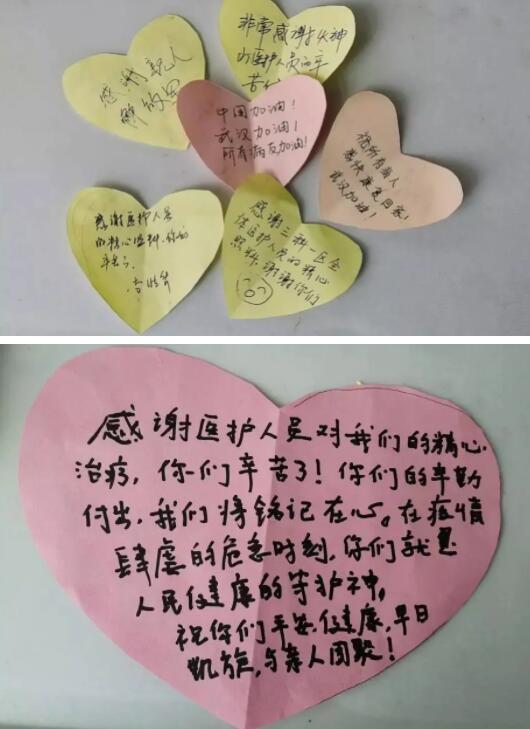 感谢亲人
解放军
非常感谢火神
山医护人员的辛
中国加油!
武汉加油!
所有病友加油!
祝所有病人
尽快康复回家!
武汉加油!
感谢医护人员
的精心照料,你们
辛苦了
感谢三科一区全
体医护人员的精心
照料,谢谢你们
感谢医护人员对我们的精心
治疗,你们辛苦了!你们的辛勤
付出,我们将铭记在心。在疫情
肆虐的危急时刻,你们就是
人民健康的守护神,
祝你们平安,健康,早日
凯旋,与亲人团聚!